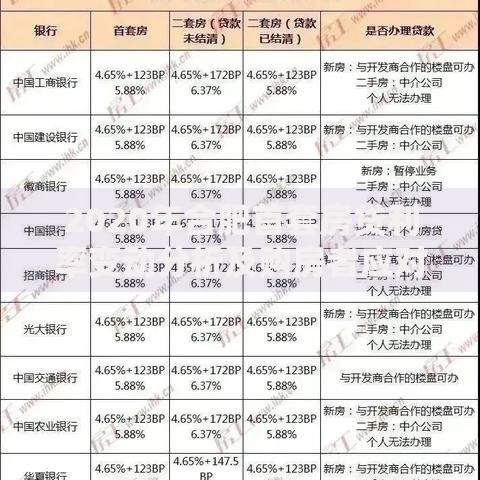 银行
首套房
二套房（贷款
未结清）
二套房（贷款
已结清）
是否办理贷款
中国工商银行
4.65%+123BP
5.88%
4.65%+172BP
6.37%
4.65%+123BP
5.88%
新房：与开发商合作的楼盘可办
二手房：中介公司
个人无法办理
中国建设银行
4.65%+123BP
5.88%
4.65%+172BP
6.37%
4.65%+123BP
5.88%
新房：与开发商合作的楼盘可办
二手房：中介公司
徽商银行
4.65%+123BP
5.88%
4.65%+172BP
6.37%
4.65%+123BP
5.88%
新房：暂停业务
二手房：中介公司
个人无法办理
中国银行
招商银行
光大银行
4.65%+123BP
5.88%
4.65%+172BP
6.37%
4.65%+123BP
5.88%
新房：与开发商合作的楼盘可办
二手房：中介公司
个人无法办理
中国交通银行
4.65%+123BP
5.88%
4.65%+172BP
6.37%
4.65%+123BP
5.88%
与开发商合作的楼盘可办
中国农业银行
4.65%+123BP
5.88%
4.65%+172BP
6.37%
4.65%+123BP
5.88%
新房：与开发商合作的楼盘可办
二手房：中介公司
个人无法办理
华夏银行
4.65%+123BP
5.88%
4.65%+147.5
BP
4.65%+123BP
5.88%
新房：与开发商合作的楼盘可办
二手房：中介公司